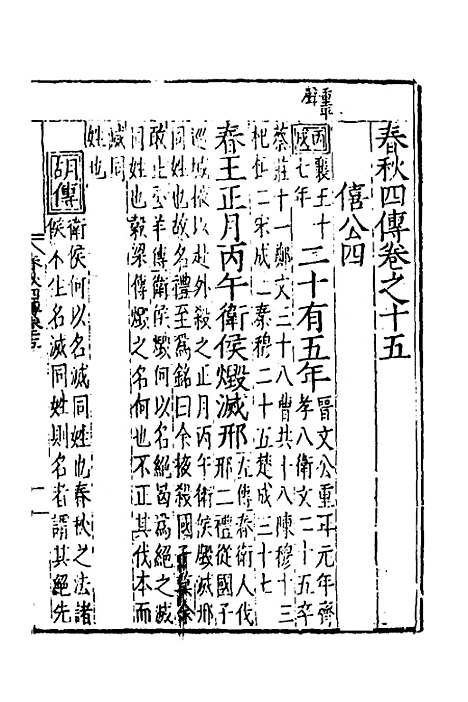 春秋四傳卷之十五
僖公四
重
聲
丙戌 襄王十
七年
二十有五年
晉文公重耳元年齊
孝八衛文二十五卒
蔡莊十一鄭文三十八曹共十八陳穆十三
杞桓二宋成二秦穆二十五楚成三十七
春王正月丙午衛侯燬滅邢
左傳春衛人伐
邢二禮從國子
巡城掖以赴外殺之正月丙午衛侯燬滅邢
同姓也故名禮至爲銘曰余掖殺國子莫余
敢止公羊傳衛侯燬何以名絕曷爲絕之滅
同姓也穀梁傳燬之名何也不正其伐本而
滅同
姓也
胡傳
衛侯何以名滅同姓也春秋之法諸
侯不生名滅同姓則名者謂其絕先